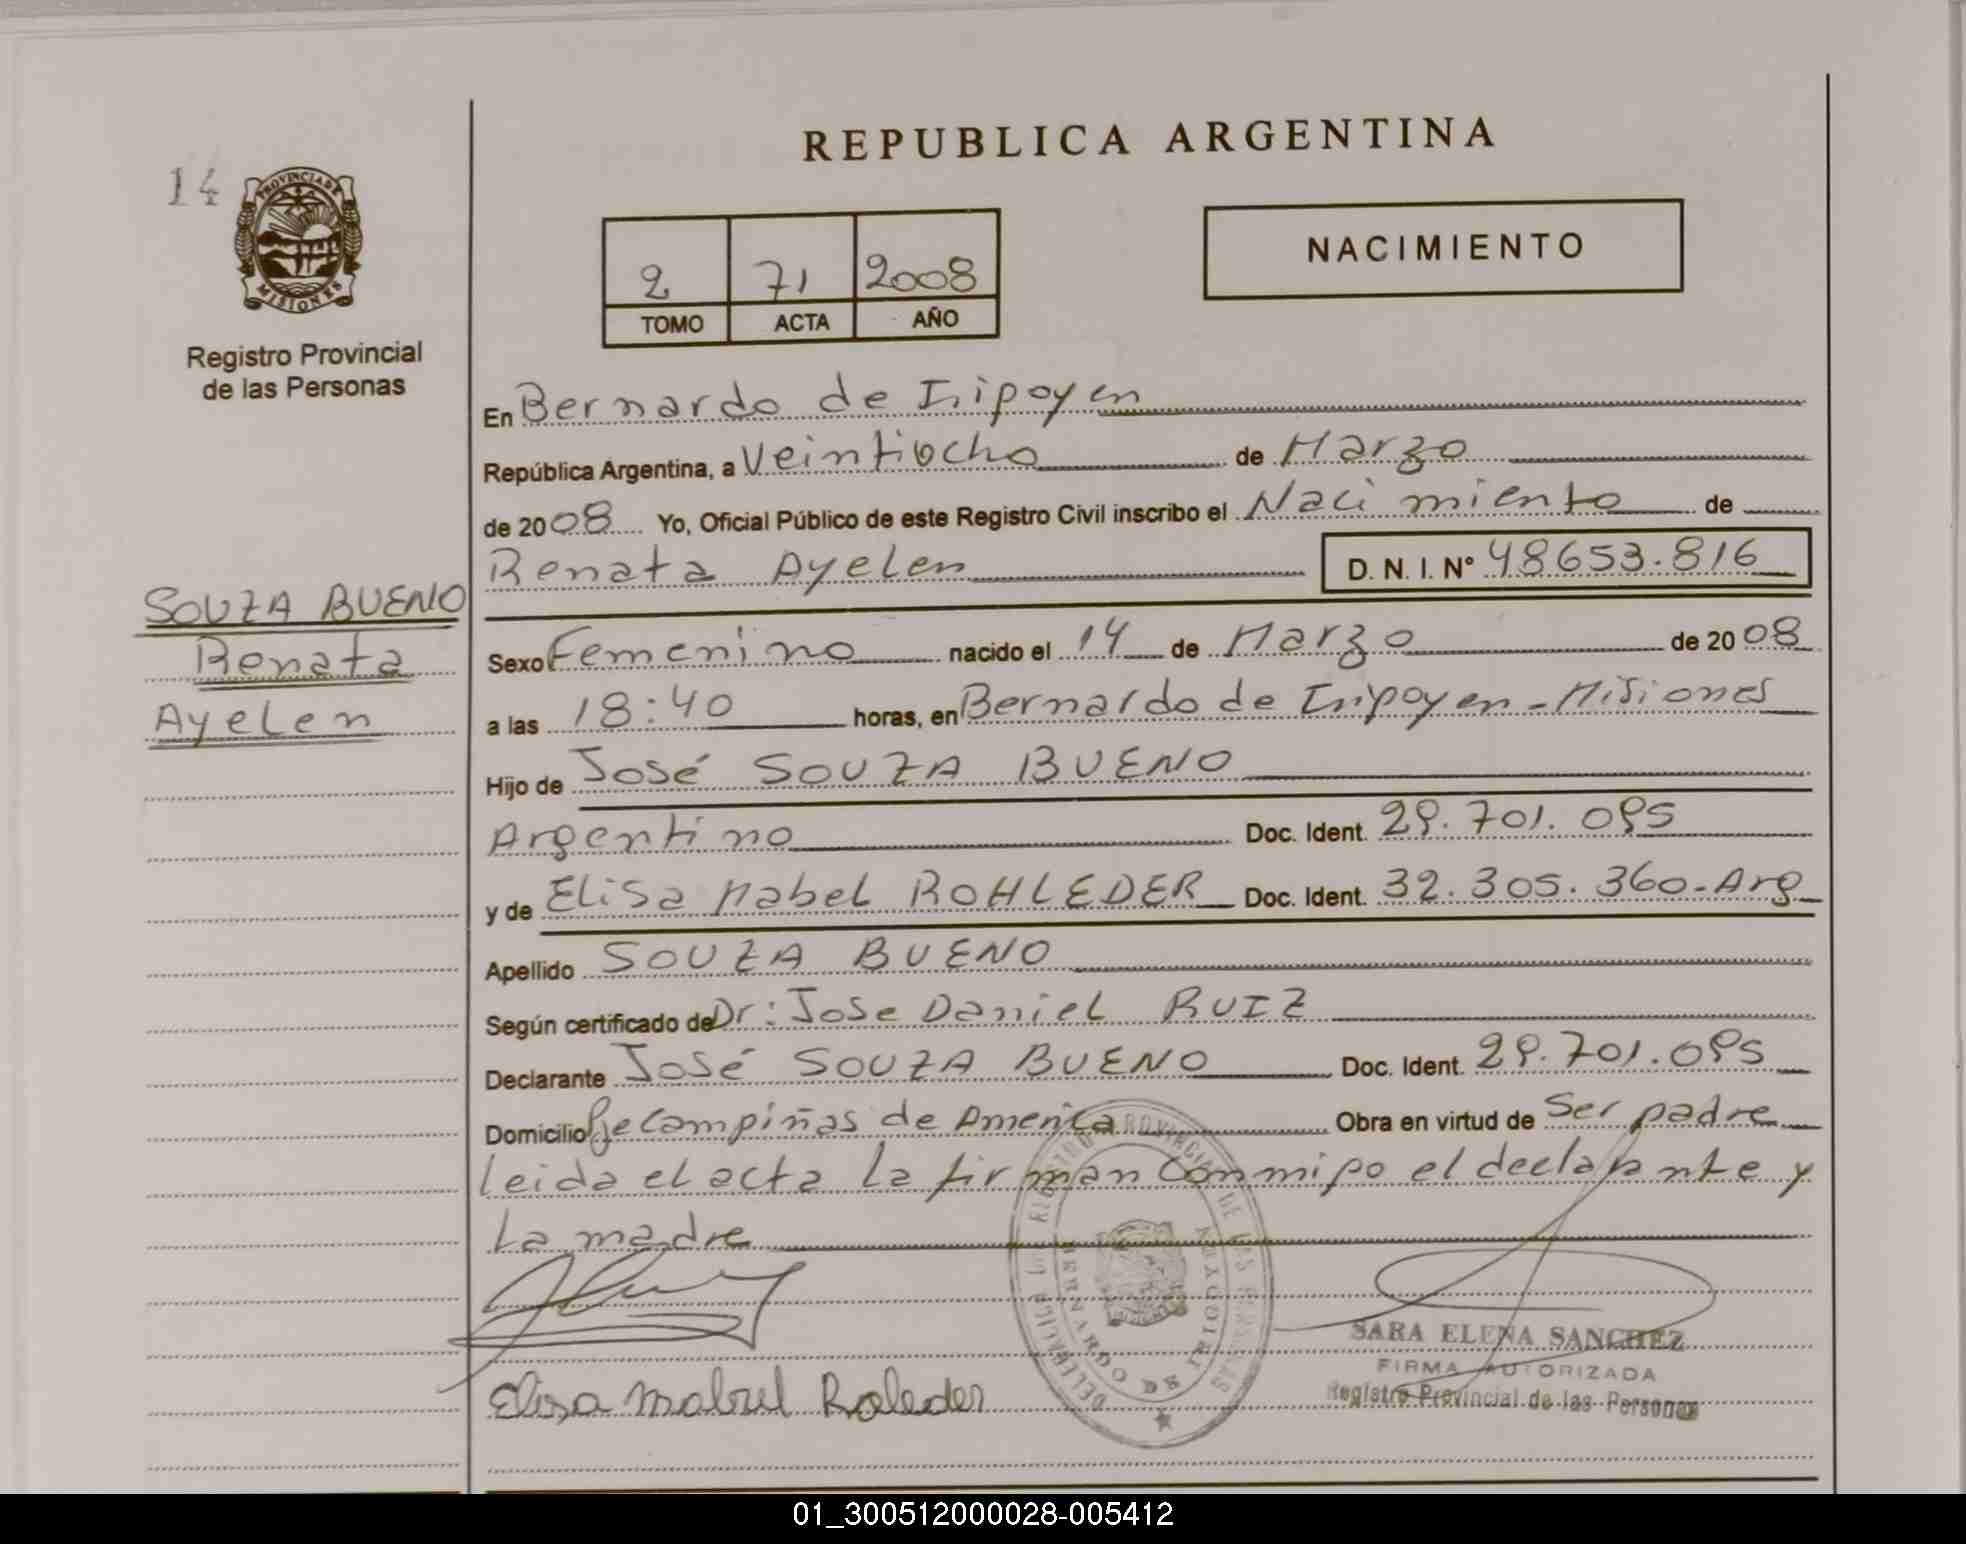 REPUBLICA ARGENTINA
14
PROVINCIA DE
MISIONES
Registro Provincial
de las Personas
NACIMIENTO
2 71 2008
TOMO ACTA AÑO
En Bernardo de Iripoyen
República Argentina, a Veintiocho de Marzo
de 2008 Yo, Oficial Público de este Registro Civil inscribo el Nacimiento de
Renata Ayelen D. N. I. N° 48653.816
SOUZA BUENO
Renata
Ayelen
Sexo Femenino nacido el 14 de Marzo de 2008
a las 18:40 horas, en Bernardo de Iripoyen - Misiones
Hijo de José SOUZA BUENO
Argentino Doc. Ident. 29.701.095
y de Elisa Mabel ROHLEDER Doc. Ident. 32.305.360-Arg
Apellido SOUZA BUENO
Según certificado de Dr: Jose Daniel RUIZ
Declarante José SOUZA BUENO Doc. Ident. 29.701.095
Domicilio Pje Campiñas de America Obra en virtud de Ser padre
leida el acta la firman conmipo el declarante y
la madre
Elisa Mabel Roleder
DELEGACION REGISTRO PROVINCIAL DE LAS PERSONAS
BERNARDO DE IRIGOYEN
SARA ELENA SANCHEZ
FIRMA AUTORIZADA
Registro Provincial de las Personas
01_300512000028-005412